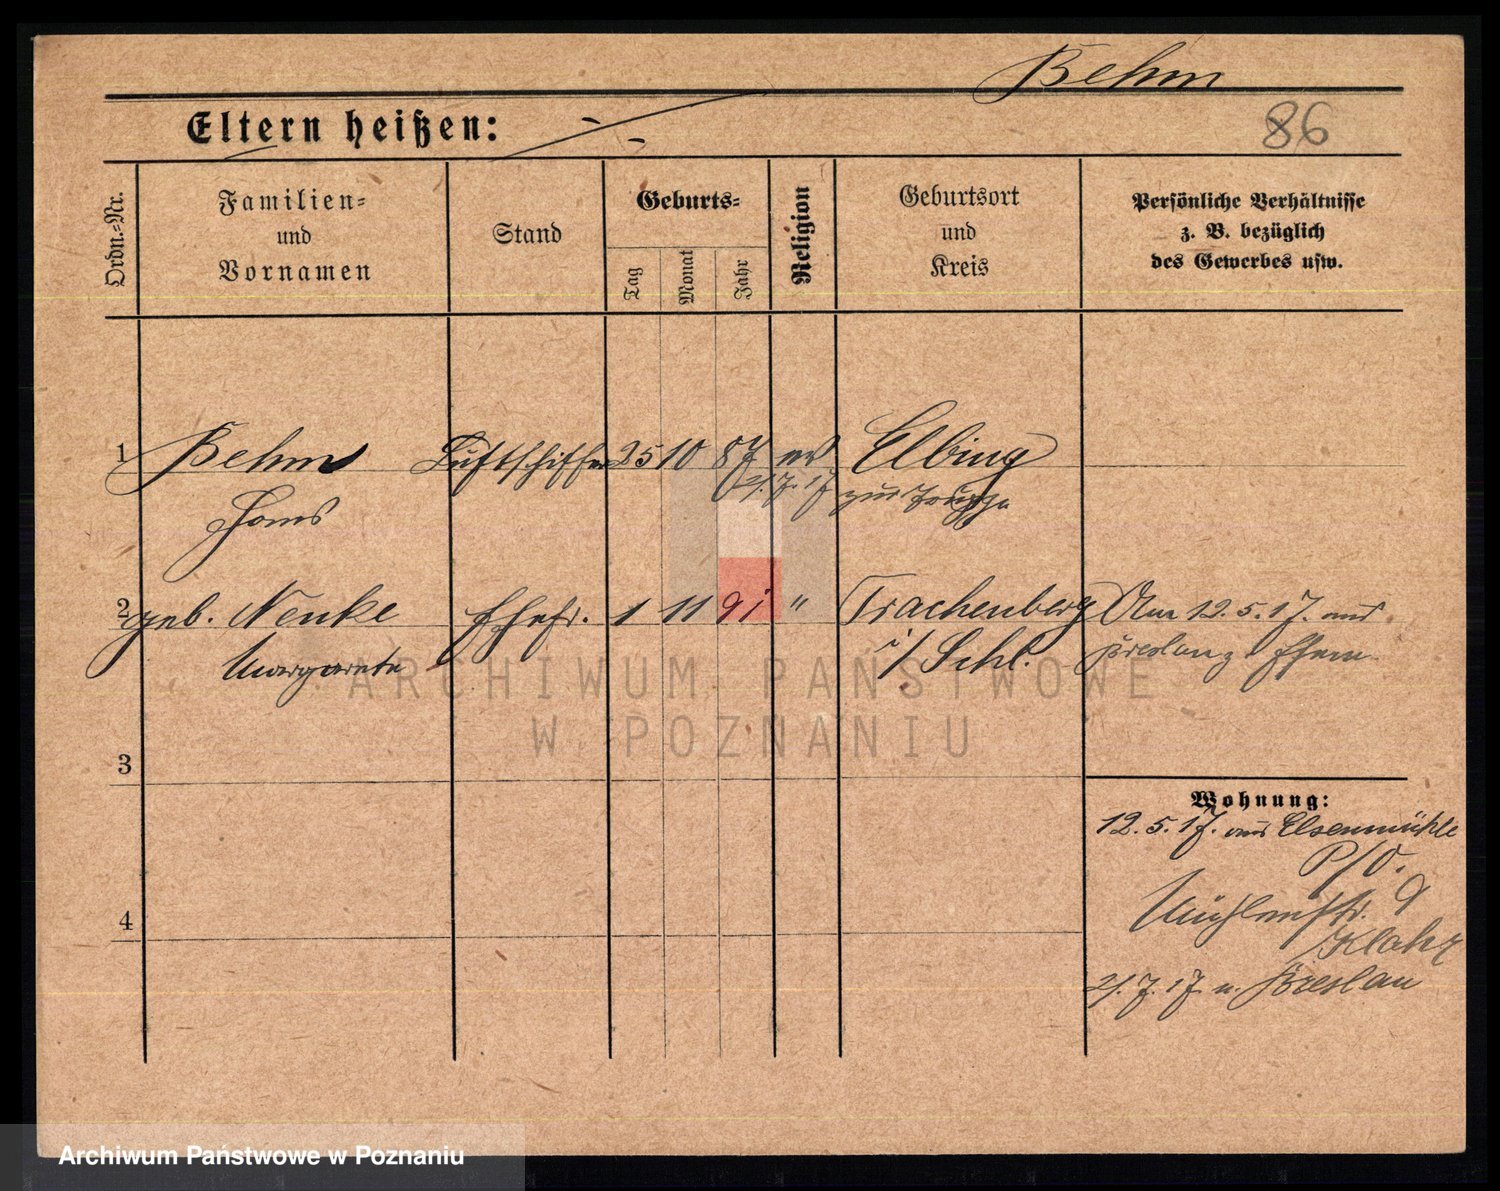 Behm
Eltern heißen:
86
Ordn.-Nr.
Familien-
und
Vornamen
Stand
Geburts-
Tag
Monat
Jahr
Religion
Geburtsort
und
Kreis
Persönliche Verhältnisse
z. B. bezüglich
des Gewerbes usw.
1 Behm Luftschiffer 25 10 87 ev Elbing
Hans 21.7.17 zur Truppe
2 geb. Nenke Ehefr. 1 11 91 " Trachenberg Am 12.5.17. aus
Margarete i/Schl. Breslau z. Ehem
3
4
Wohnung:
12.5.17. aus Elsenmühle
P/O.
Mühlenstr. 9
Klahr
21.7.17 n. Breslau
ARCHIWUM PAŃSTWOWE
W POZNANIU
Archiwum Państwowe w Poznaniu